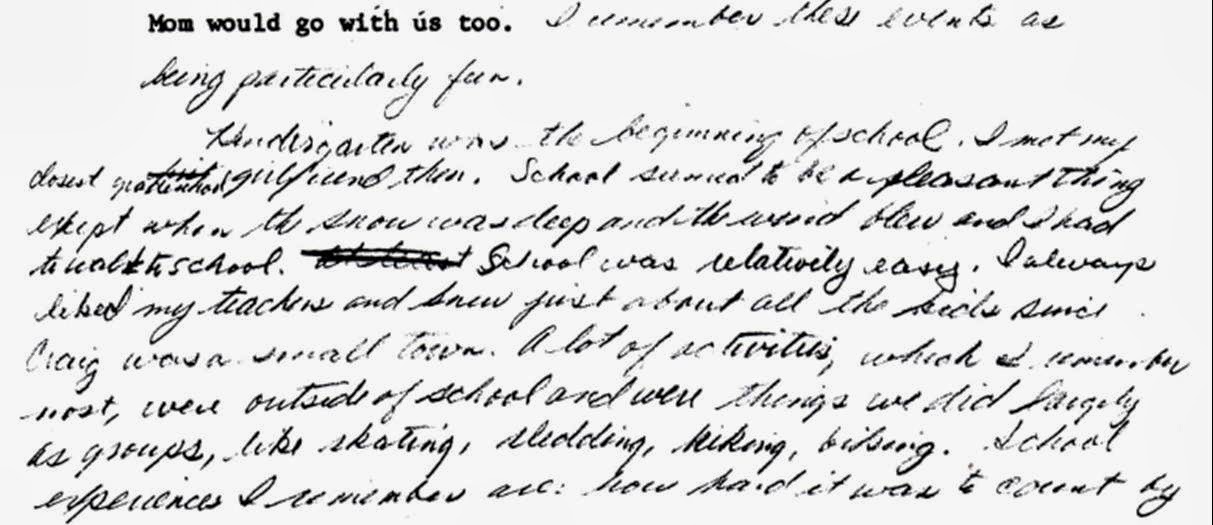 Mom would go with us too. I remember these events as
being particularly fun.
Kindergarten was the beginning of school. I met my
closest girlfriend then. School seemed to be a pleasant thing
except when the snow was deep and the wind blew and I had
to walk to school. School was relatively easy. I always
liked my teachers and knew just about all the kids since
Craig was a small town. A lot of activities, which I remember
most, were outside of school and were things we did largely
as groups, like skating, sledding, hiking, biking. School
experiences I remember are: how hard it was to count by